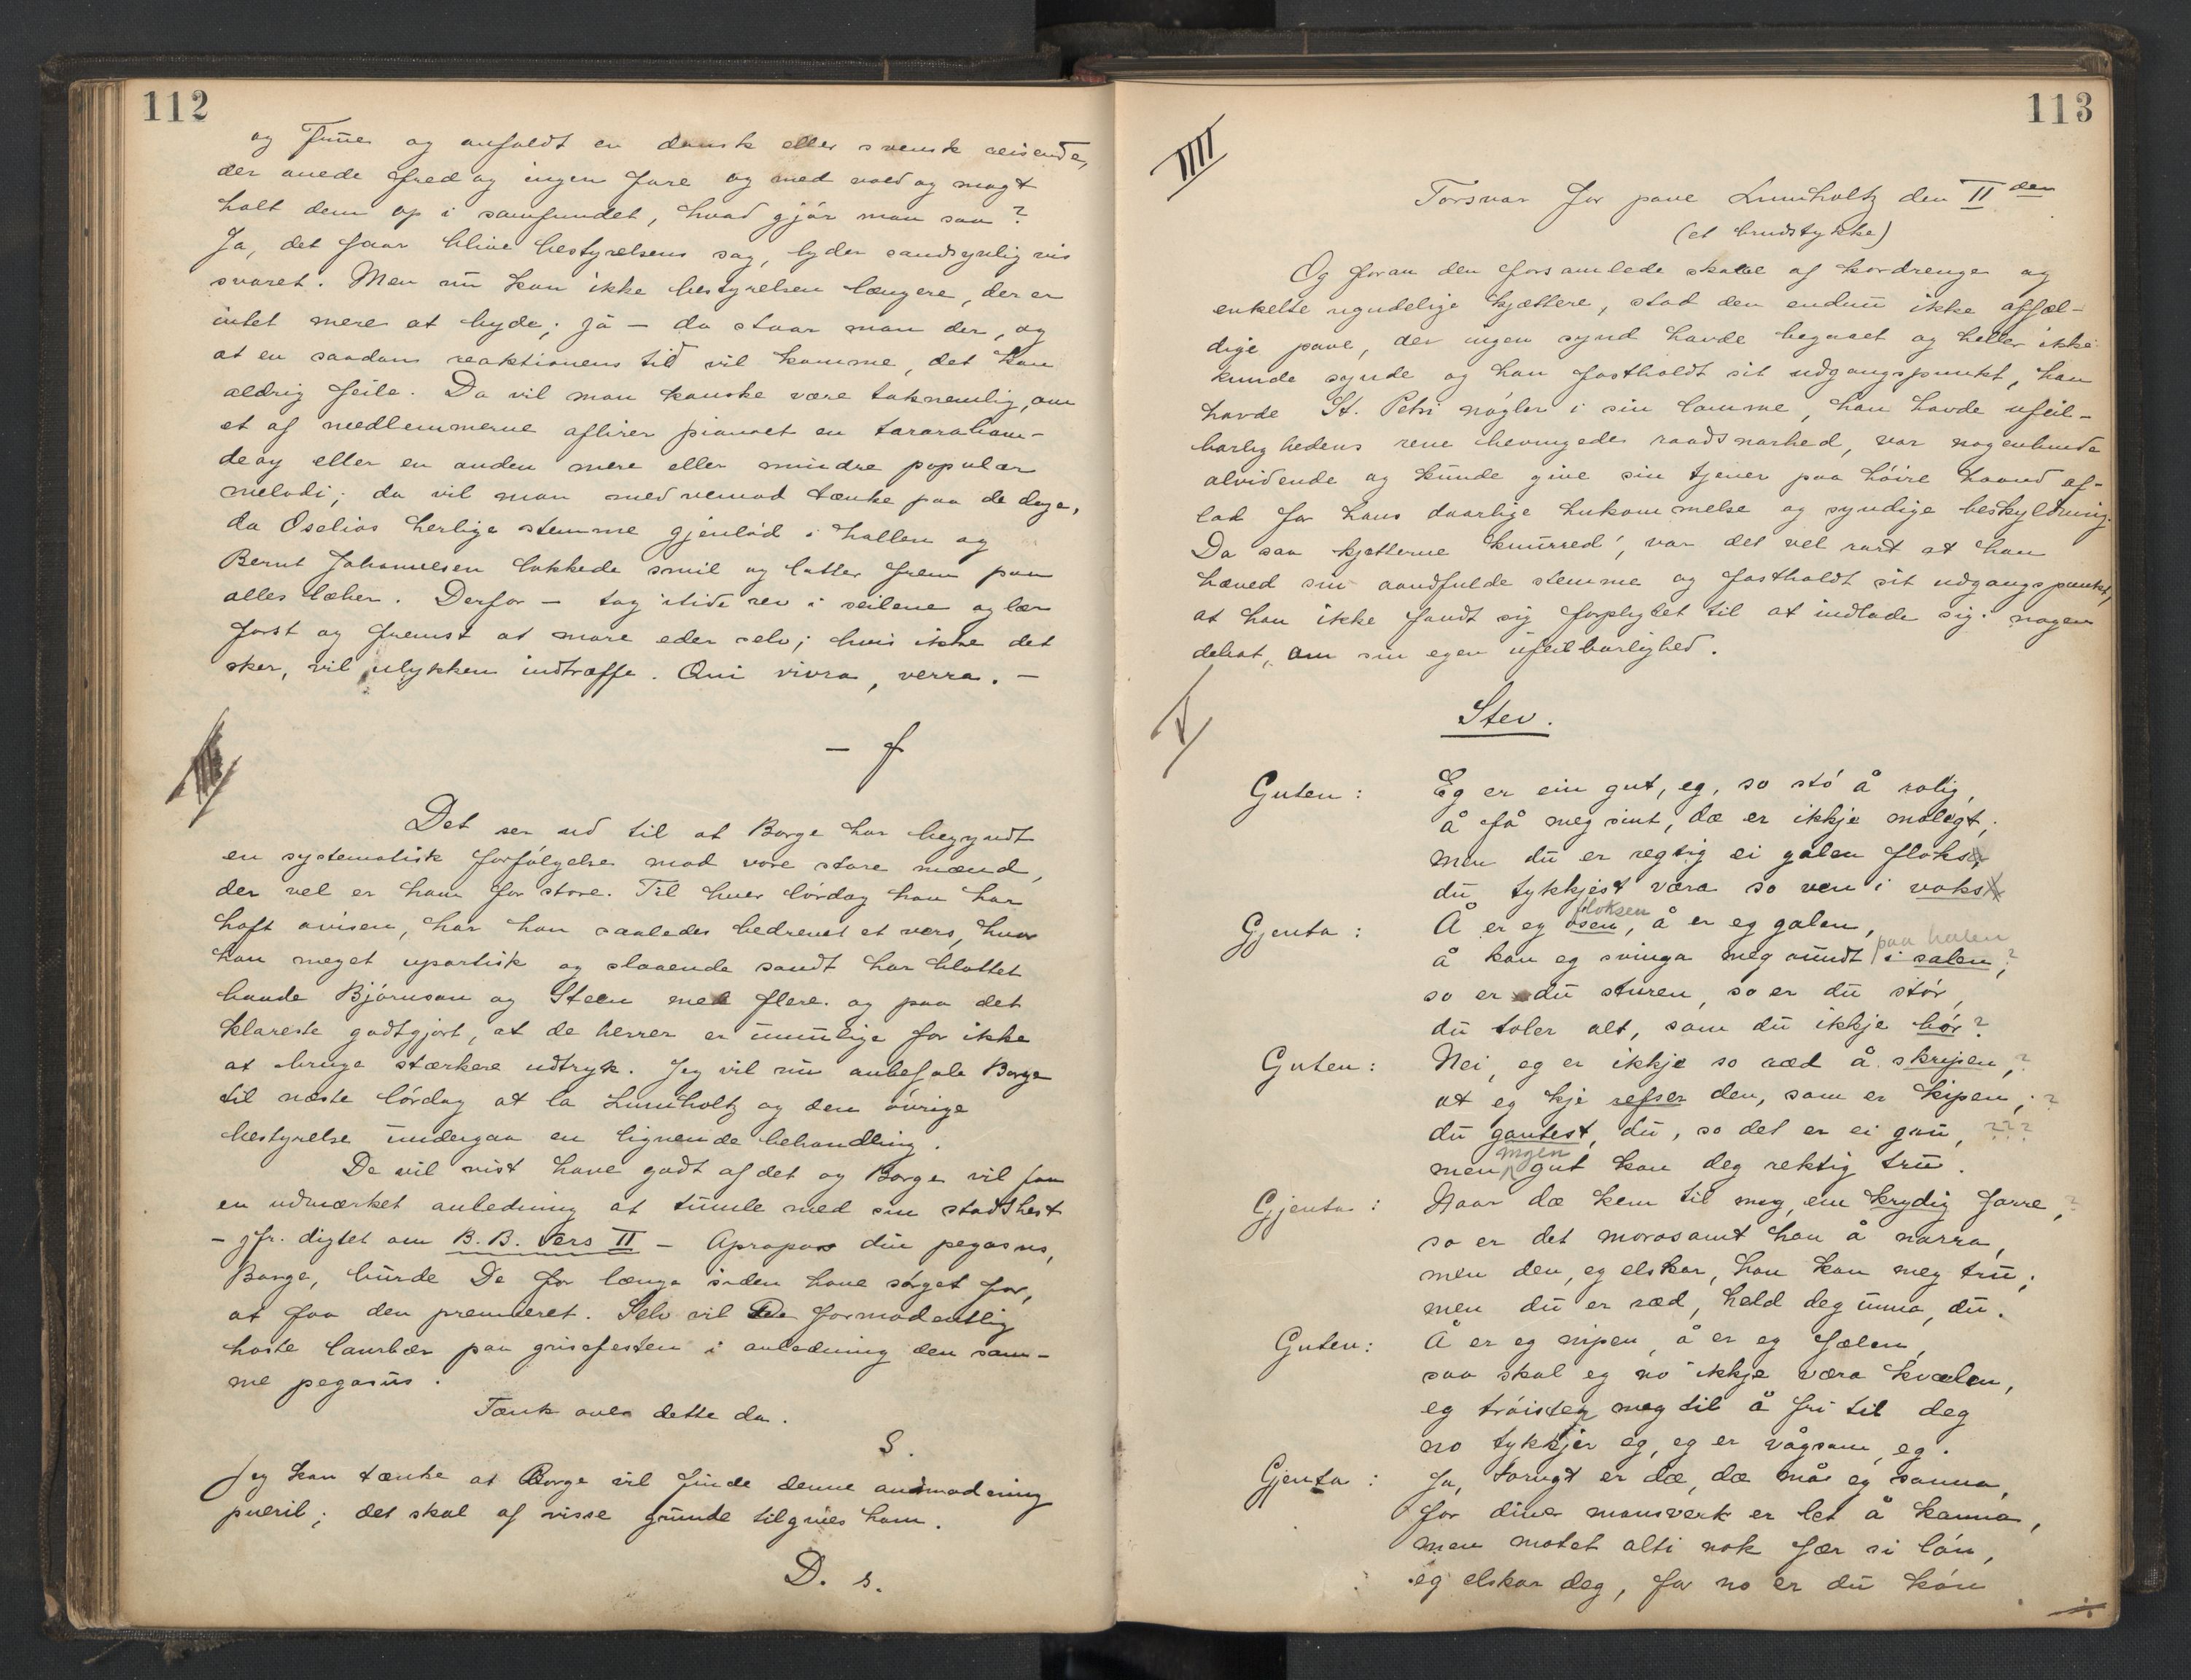 112
og Fines og anfaldt en dansk eller svensk reisende,
der anede fred og ingen fare og med vold og magt
halt dem op i samfundet, hvad gjør man saa?
Ja, det faar blive bestyrelsens sag, lyder sandsynligvis
svaret. Men nu kan ikke bestyrelsen længere, der er
intet mere at byde; ja — da staar man der, og
at en saadan reaktionens tid vil komme, det kan
aldrig feile. Da vil man kanske være taknemlig, om
et af medlemmerne aflirer pianoet en tararabom-
deay eller en anden mere eller mindre populær
melodi; da vil man med vemod tænke paa de dage,
da Oselios herlige stemme gjenlød i hallen og
Bernt Johannesen lokkede smil og latter frem paa
alles læber. Derfor — tag itide rev i seilene og lær
først og fremst at more eder selv; hvis ikke det
sker, vil ulykken indtræffe. Qui vivra, verra. —
— f
Det ser ud til at Borge har begyndt
en systematisk forfølgelse mod vore store mænd,
der vel er ham for store. Til hver lørdag han har
haft avisen, har han saaledes bedrevet et vers, hvor
han meget upartisk og slaaende sandt har blottet
baade Bjørnson og Steen med flere og paa det
klareste godtgjort, at de herrer er umulige for ikke
at bruge stærkere udtryk. Jeg vil nu anbefale Borge
til næste lørdag at la Lumholtz og den øvrige
bestyrelse undergaa en lignende behandling.
De vil vist have godt af det og Borge vil faa
en udmærket anledning at tumle med sin stadshest
— jfr. digtet om B.B. Vers II — Apropos din pegasus,
Borge, burde De for længe siden have sørget for,
at faa den premieret. Selv vil De formodentlig
høste laurbær paa grisefesten i anledning den sam-
me pegasus.
Tænk over dette da.
S.
Jeg kan tænke at Borge vil finde denne anmodning
pueril; det skal af visse grunde tilgives ham.
D. s.
113
IIII
Forsvar for pave Lumholtz den II den
(et brudstykke)
Og foran den forsamlede skare af kordrenge og
enkelte ugudelige kjættere, stod den endnu ikke affæl-
dige pave, der ingen synd havde begaaet og heller ikke
kunde synde og han fastholdt sit udgangspunkt, han
havde St. Petri nøgler i sin lomme, han havde ufeil-
barlighedens rene bevingede raadsnarhed, var nogenlunde
alvidende og kunde give sin tjener paa høire haand af-
lad for hans daarlige hukommelse og syndige beskyldning.
Da saa kjætterne knurred', var det vel rart at han
hæved sin aandfulde stemme og fastholdt sit udgangspunkt,
at han ikke fandt sig forpligtet til at indlade sig i nogen
debat, om sin egen ufeilbarlighed.
V
Stev.
Guten: Eg er ein gut, eg, so stø å rolig,
å få meg sint, dæ er ikkje moligt;
men du er regtig ei galen floks
du tykkjest væra so ven i voks
floksen
Gjenta: Å er eg osen, å er eg galen,
paa halen
å kan eg svinga meg rundt i salen;?
so er du sturen, so er du stør,
du toler alt, som du ikkje bør?
Guten: Nei, eg er ikkje so ræd å skripen,?
at eg kje refser den, som er kipen;?
du gantest, du, so det er ei gru, ???
ingen
men gut kan deg rektig tru.
Gjenta: Naar dæ kem til meg, ein krydig farre,?
so er det morosamt han å narra,
men den, eg elskar, han kan meg tru;
men du er ræd, held deg unna, du.
Guten: Å er eg nipen, å er eg fælen,
saa skal eg no ikkje væra kvælen,
eg trøister meg til å fri til deg
no tykkjer eg, eg er vågsam, eg.
Gjenta: Ja, tarvgt er dæ, dæ må eg sanna,
for dine mansverk er let å kanna,
men motet alti nok fær si løn,
eg elskar deg, for no er du køn